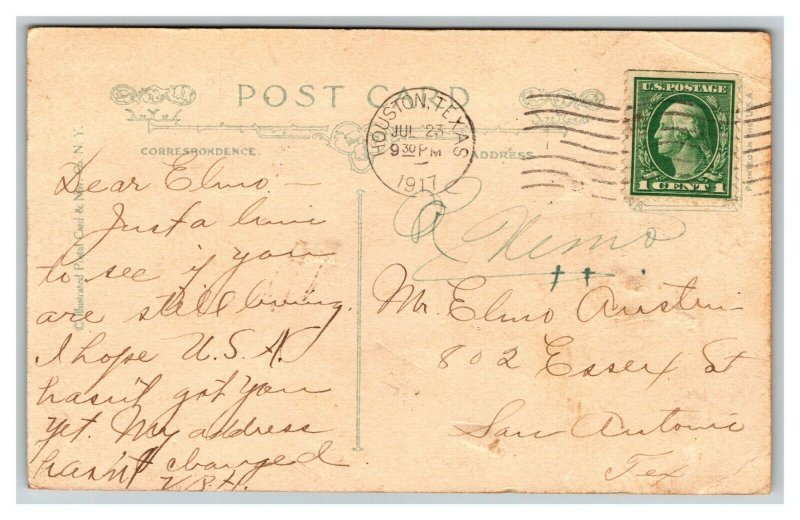 POST CARD
CORRESPONDENCE.
ADDRESS.
HOUSTON, TEXAS
JUL 23
9 30 PM
1917
U.S. POSTAGE
1 CENT 1
© Illustrated Postal Card & Nov. Co. N. Y.
Dear Elmo –
Just a line
to see if you
are still living.
I hope U.S.A.
hasn't got you
yet. My address
hasn't changed
V.P.H.
Nemo
Mr. Elmo Austin
802 Essex St
San Antonio
Tex